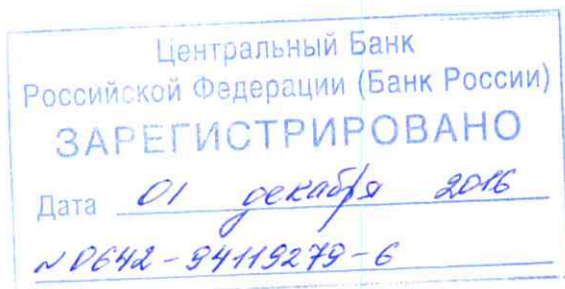 Центральный Банк
Российской Федерации (Банк России)
ЗАРЕГИСТРИРОВАНО
Дата 01 декабря 2016
N 0642-94119279-6